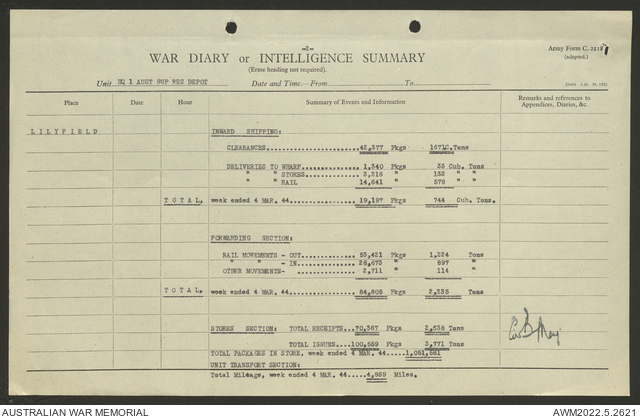 -2-
Army Form C. 2118
WAR DIARY or INTELLIGENCE SUMMARY
(adapted.)
(Erase heading not required).
Unit HQ 1 AUST SUP RES DEPOT Date and Time.—From To
Place Date Hour Summary of Events and Information Remarks and references to Appendices, Diaries, &c.
LILYFIELD INWARD SHIPPING:
CLEARANCES 42,377 Pkgs Tons
DELIVERIES TO WHARF 1,340 Pkgs 33 Cub. Tons
" " STORES 3,216 " 133 " "
" " RAIL 14,641 " 578 " "
TOTAL, week ended 4 MAR. 44 19,197 Pkgs 744 Cub. Tons.
FORWARDING SECTION:
RAIL MOVEMENTS - OUT 53,421 Pkgs 1,224 Tons
" " - IN 28,673 " 897 "
OTHER MOVEMENTS- 2,711 " 114 "
TOTAL, week ended 4 MAR. 44 84,805 Pkgs 2,235 Tons
STORES SECTION: TOTAL RECEIPTS...70,367 Pkgs 2,638 Tons
TOTAL ISSUES...100,559 Pkgs 3,771 Tons
TOTAL PACKAGES IN STORE, week ended 4 MAR. 44.....1,051,581
UNIT TRANSPORT SECTION:
Total Mileage, week ended 4 MAR. 44.....4,959 Miles.
AUSTRALIAN WAR MEMORIAL AWM2022.5.2621